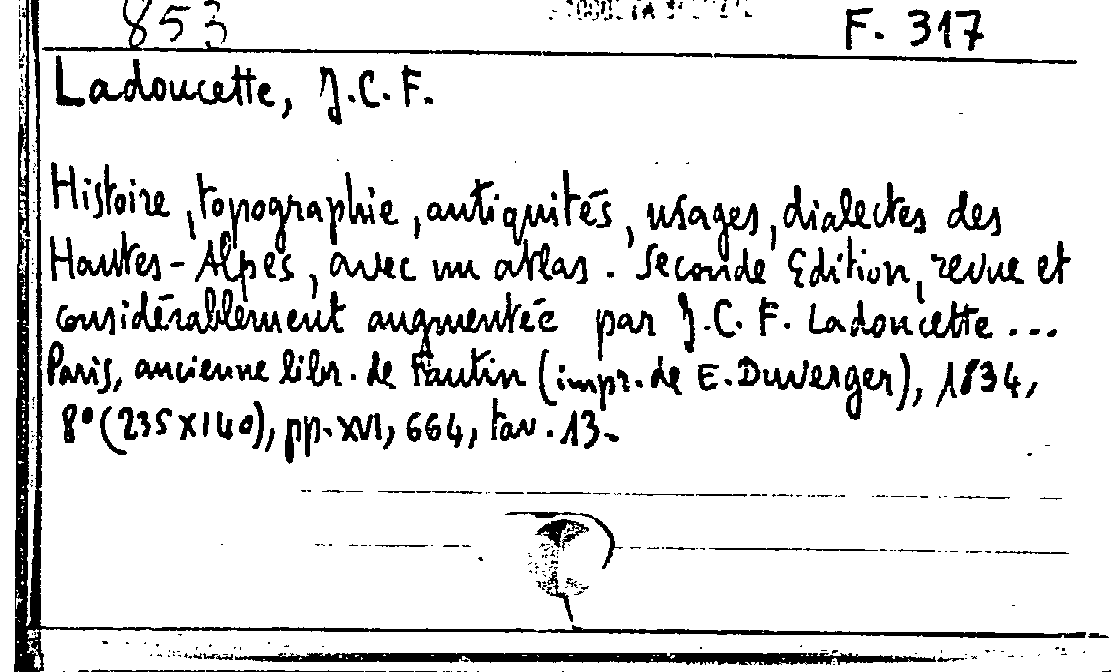 853
F. 317
Ladoucette, J.C.F.
Histoire, topographie, antiquités, usages, dialectes des
Hautes-Alpes, avec un atlas. Seconde Edition, revue et
considérablement augmentée par J.C.F. Ladoucette...
Paris, ancienne libr. de Fantin (impr. de E. Duverger), 1834,
8° (235x140), pp. XVI, 664, tav. 13.